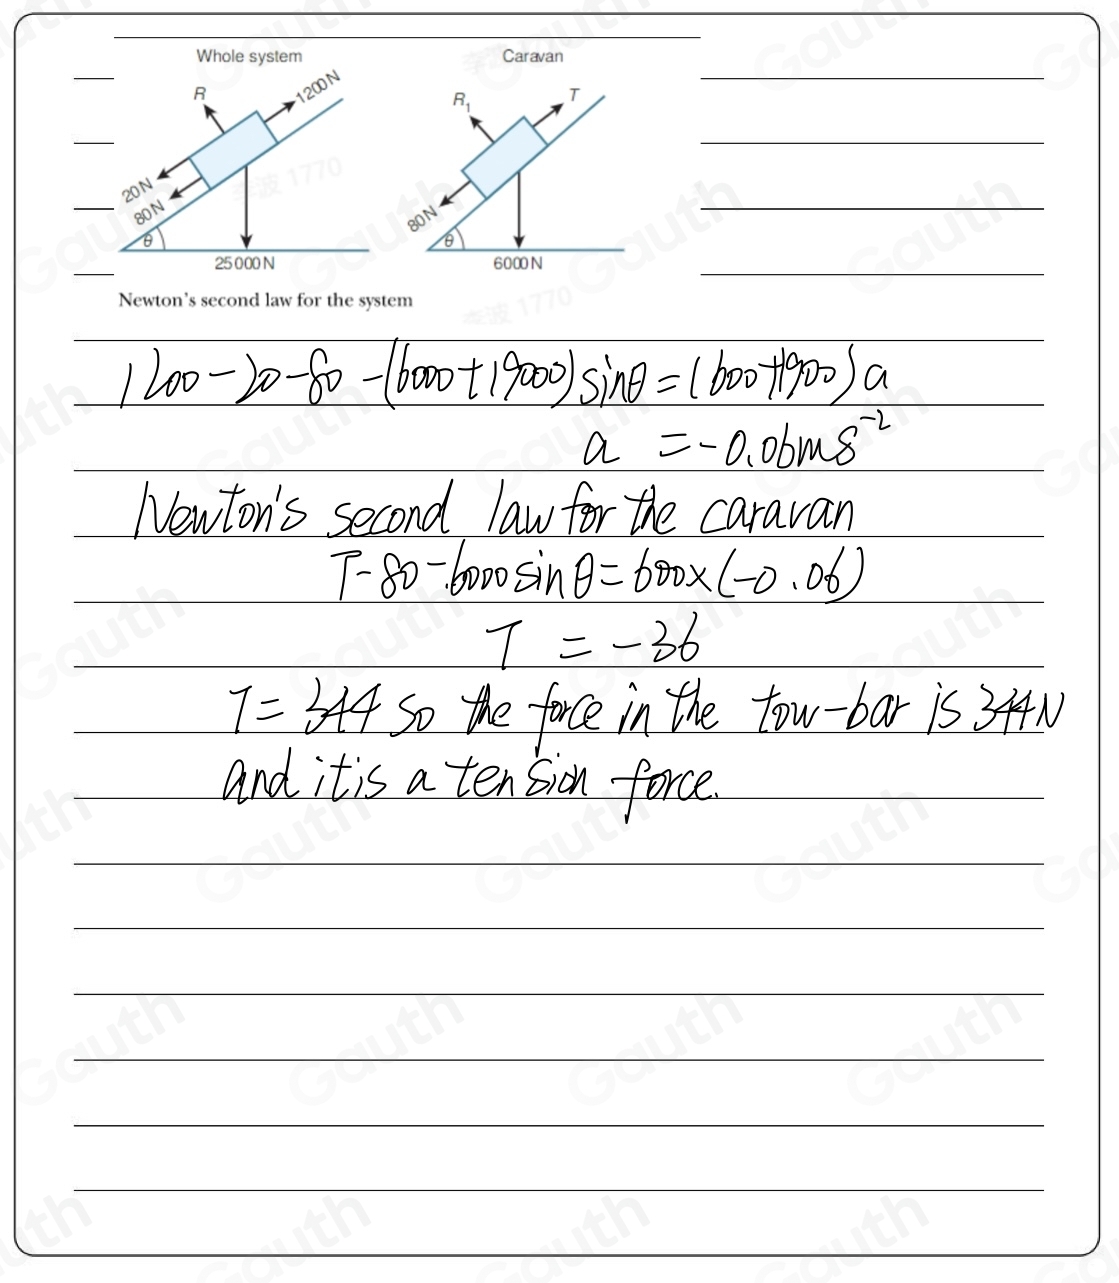 Whole system
Caravan
R
1200N
20N
80N
θ
25000N
R₁
T
80N
θ
6000N
Newton's second law for the system
1200-20-80-(6000+19000)sinθ=(600+1900)a
a = -0.06ms⁻²
Newton's second law for the caravan
T-80-6000sinθ=600×(-0.06)
T = -36
T=344 so the force in the tow-bar is 344N
and it is a tension force.
Gauth
李波 1770